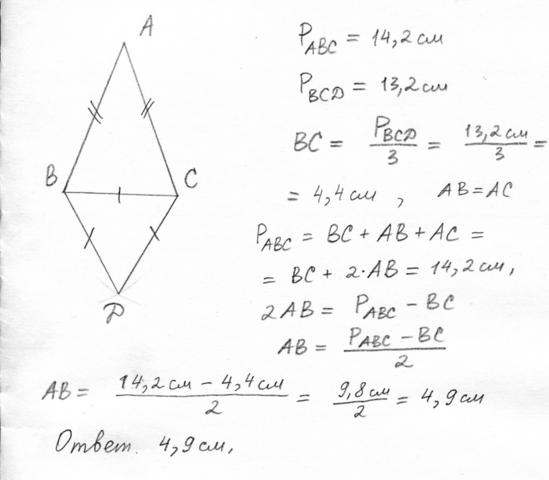 A
B
C
D
P_ABC = 14,2 см
P_BCD = 13,2 см
BC = P_BCD/3 = 13,2 см/3 =
= 4,4 см , AB = AC
P_ABC = BC + AB + AC =
= BC + 2·AB = 14,2 см,
2AB = P_ABC − BC
AB = (P_ABC − BC)/2
AB = (14,2 см − 4,4 см)/2 = 9,8 см/2 = 4,9 см
Ответ. 4,9 см.